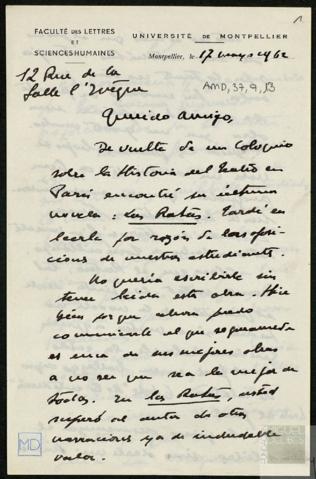 1
FACULTÉ DES LETTRES
ET
SCIENCES HUMAINES
UNIVERSITÉ DE MONTPELLIER
Montpellier, le 17 mayo 1962
12 Rue de la
Salle l'Evêque
AMD, 37, 9, 13
Querido amigo,
De vuelta de un coloquio
sobre la Historia del Teatro en
Paris encontré su última
novela: Las Ratas. Tardé en
leerla por razón de las oposi-
cions de nuestros estudiants.
No quería escribirle sin
tener leída esta obra. Hice
bien porque ahora puedo
comunicarle al que seguramente
es una de sus mejores obras
a no ser que sea la mejor de
todas. En Las Ratas, usted
superó al autor de otras
narraciones ya de indudable
valor.
MD